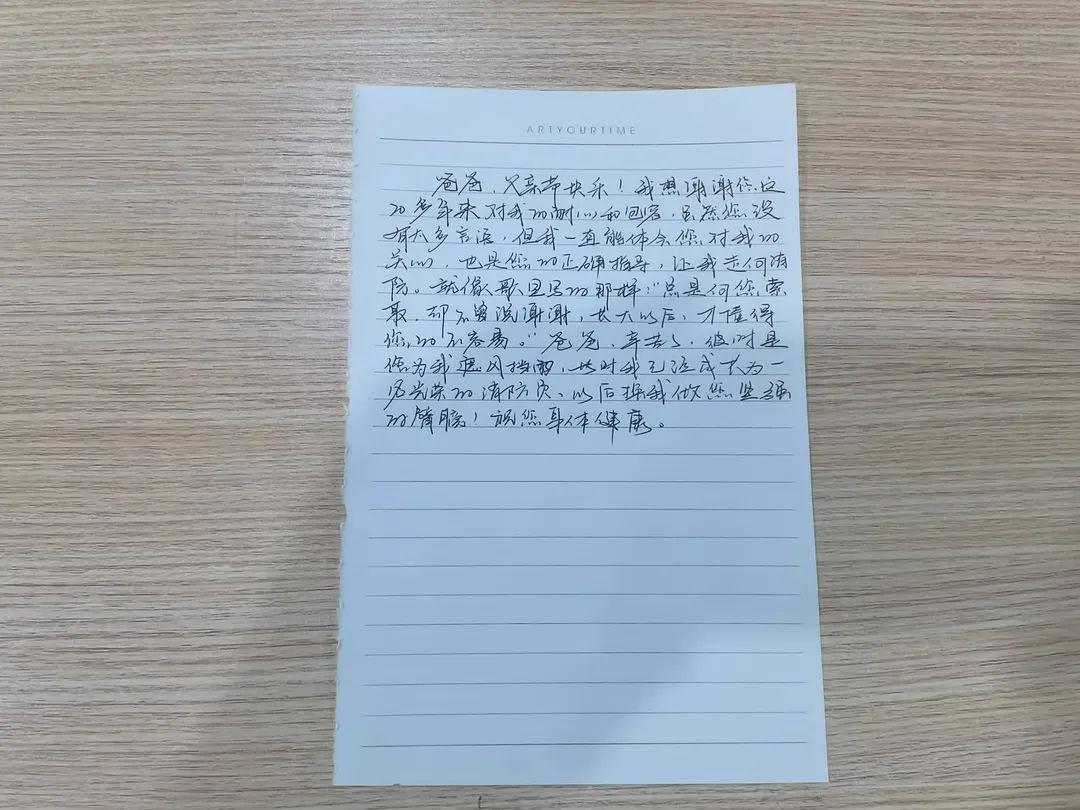 ARTYOURTIME
爸爸,父亲节快乐!我想谢谢你这
20多年来对我的耐心和包容,虽然您没
有太多言语,但我一直能体会您对我的
关心,也是您的正确指导,让我走向消
防。就像歌里写的那样:“总是向您索
取,却不曾说谢谢,长大以后,才懂得
您的不容易。”爸爸,辛苦了,彼时是
您为我遮风挡雨,此时我已经成长为一
名光荣的消防员,以后换我做您坚强
的臂膀!祝您身体健康。